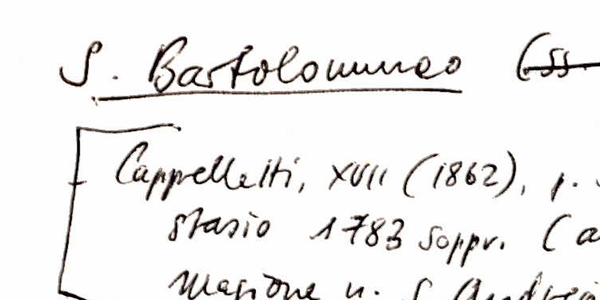 S. Bartolommeo (ss.
Cappelletti, XVII (1862), p.
stasio 1783 soppr. (a
magione n. S. Andrea